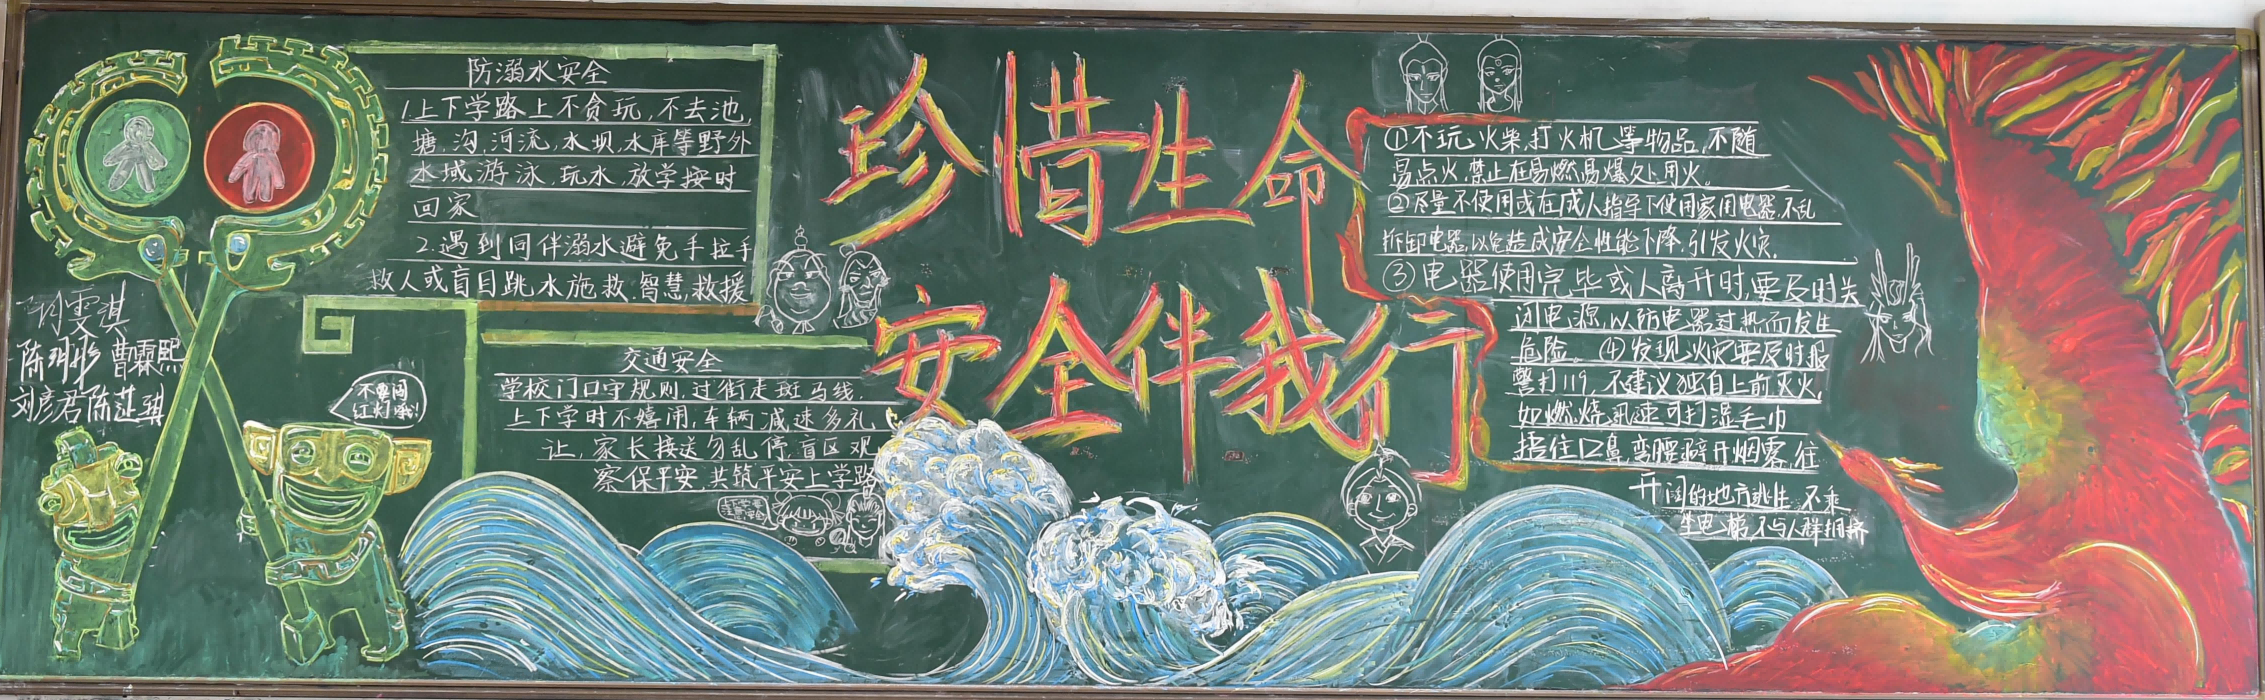 防溺水安全
1.上下学路上不贪玩,不去池
塘、沟、河流、水坝、水库等野外
水域游泳、玩水,放学按时
回家
2.遇到同伴溺水避免手拉手
救人或盲目跳水施救.智慧救援
陈玥彤 曹霖熙
刘彦君 陈芷琪
不要闯
红灯哦!
交通安全
学校门口守规则,过街走斑马线.
上下学时不嬉闹,车辆减速多礼
让,家长接送勿乱停,盲区观
察保平安,共筑平安上学路
上下学要
注意安全
珍惜生命
安全伴我行
①不玩火柴,打火机等物品,不随
易点火,禁止在易燃易爆处用火。
②尽量不使用或在成人指导下使用家用电器,不乱
拆卸电器,以免造成安全性能下降,引发火灾.
③电器使用完毕或人离开时,要及时关
闭电源,以防电器过热而发生
危险。④发现火灾要及时报
警打119,不建议独自上前灭火,
如燃烧迅速可打湿毛巾
捂住口鼻,弯腰避开烟雾,往
开阔的地方逃生,不乘
坐电梯,不与人群拥挤